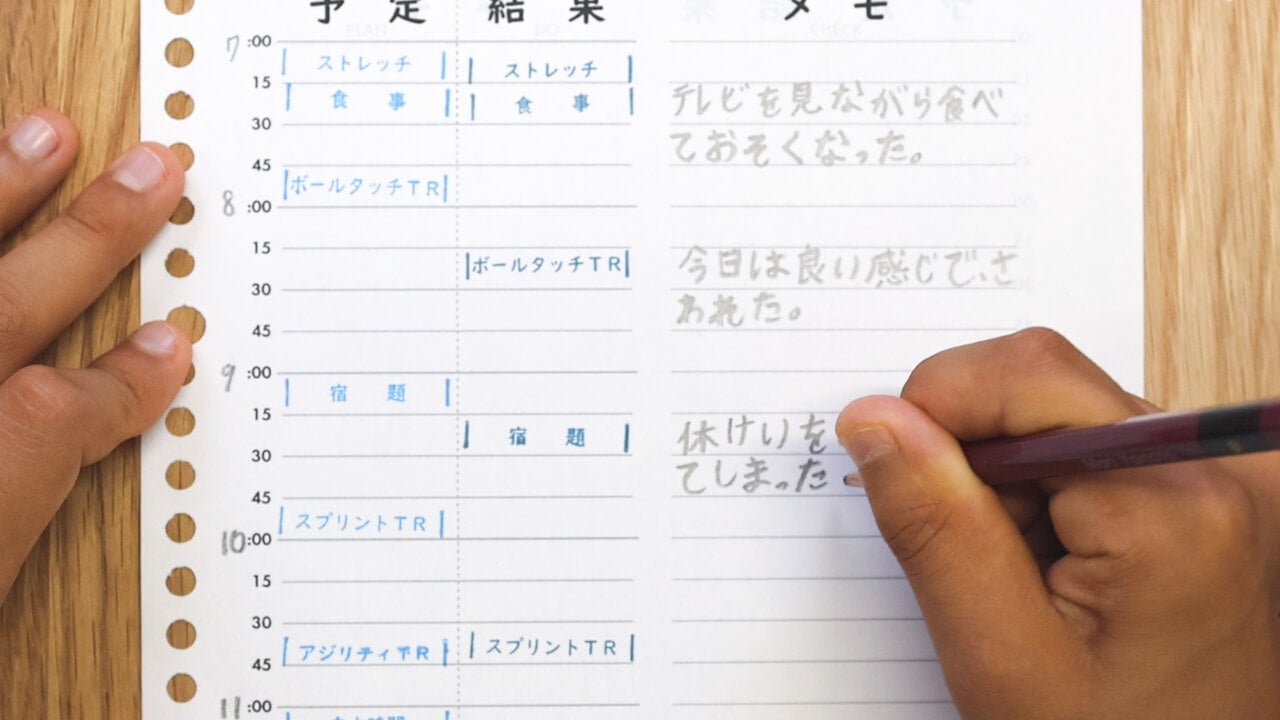 予定 結果 メモ
PLAN DO CHECK
7 :00
ストレッチ ストレッチ
15
食事 食事 テレビを見ながら食べ
30
ておそくなった。
45
ボールタッチTR
8 :00
15
ボールタッチTR 今日は良い感じで、さ
30
われた。
45
9 :00
宿題
15
宿題 休けいを
30
てしまった
45
スプリントTR
10 :00
15
30
アジリティTR スプリントTR
45
11 :00